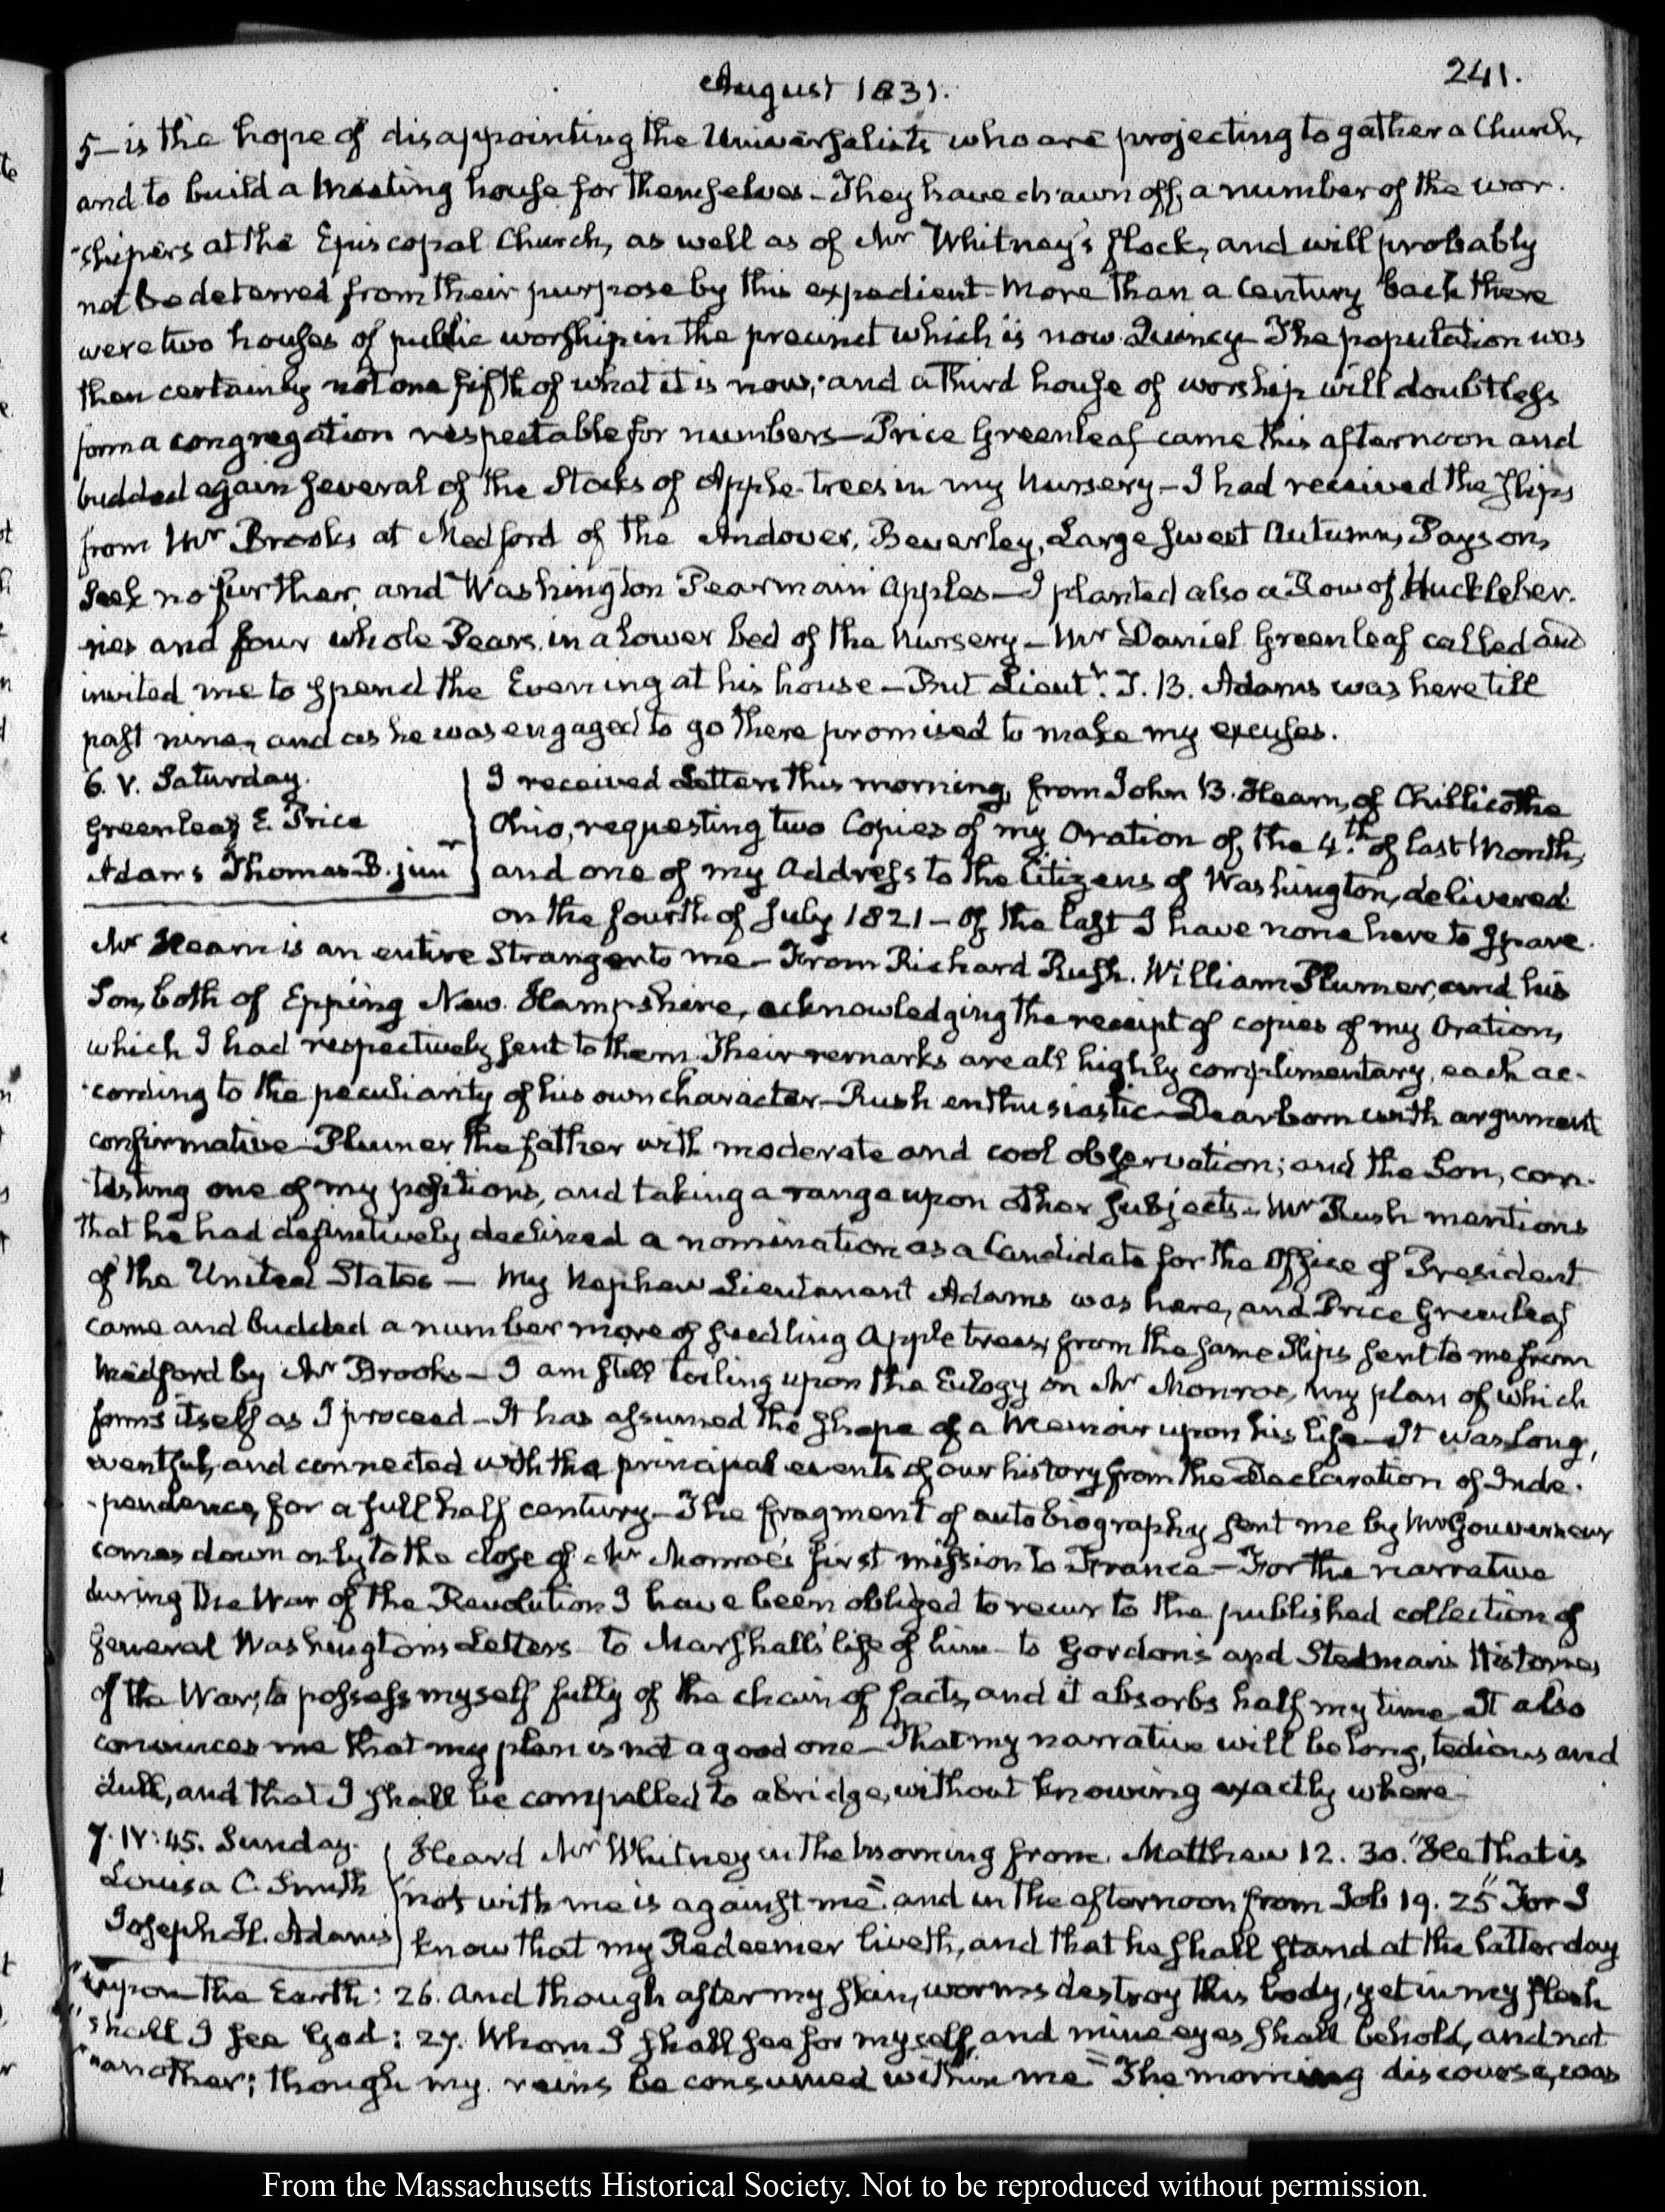 August 1831.
241.
5— is the hope of disappointing the Universalists who are projecting to gather a Church,
and to build a Meeting house for themselves - They have drawn off, a number of the wor-
-shipers at the Episcopal Church, as well as of Mr Whitney's flock, and will probably
not be deterred from their purpose by this expedient - More than a Century back there
were two houses of public worship in the precinct which is now Quincy - The population was
then certainly not one fifth of what it is now; and a third house of worship will doubtless
form a congregation respectable for numbers - Price Greenleaf came this afternoon and
budded again several of the Stocks of Apple-trees in my Nursery - I had received the slips
from Mr Brooks at Medford of the Andover, Beverley, Large Sweet Autumn, Payson,
Seek no further, and Washington Pearmain Apples - I planted also a Row of Huckleber-
-ries and four whole Pears, in a lower bed of the Nursery - Mr Daniel Greenleaf called and
invited me to spend the Evening at his house - But Lieutt. T. B. Adams was here till
past nine, and as he was engaged to go there promised to make my excuses.
6. V. Saturday.
Greenleaf E. Price
Adams Thomas B. junr
I received Letters this morning, from John B. Hearn, of Chillicothe
Ohio, requesting two Copies of my Oration of, the 4th. of last Month,
and one of my Address to the Citizens of Washington, delivered
on the fourth of July 1821 - Of the last I have none here to spare.
Mr Hearn is an entire Stranger to me - From Richard Rush. William Plumer, and his
Son, both of Epping New Hampshire, acknowledging the receipt of copies of my Oration,
which I had respectively sent to them. Their remarks are all highly complimentary, each ac-
-cording to the peculiarity of his own character - Rush enthusiastic - Dearborn with argument
confirmative - Plumer the father with moderate and cool observation; and the Son, con-
-testing one of my positions, and taking a range upon other subjects - Mr Rush mentions
that he had definitively declined a nomination as a Candidate for the Office of President
of the United States — My Nephew Lieutenant Adams was here, and Price Greenleaf
came and budded a number more of seedling Apple trees, from the same Slips sent to me from
Medford by Mr Brooks - I am still toiling upon the Eulogy on Mr Monroe, my plan of which
forms itself as I proceed - It has assumed the shape of a Memoir upon his life - It was long,
eventful, and connected with the principal events of our history from the Declaration of Inde-
-pendence, for a full half century - The fragment of autobiography sent me by Mr Gouverneur
comes down only to the close of Mr Monroe's first mission to France - For the narrative
during the War of the Revolution I have been obliged to recur to the published collection of
General Washington's Letters - to Marshall's life of him - to Gordon's and Stedman's Histories
of the War, to possess myself fully of the chain of facts, and it absorbs half my time - It also
convinces me that my plan is not a good one - That my narrative will be long, tedious and
dull, and that I shall be compelled to abridge, without knowing exactly where -
7. IV:45. Sunday.
Louisa C. Smith
Joseph H. Adams
Heard Mr Whitney in the morning from Matthew 12. 30. "He that is
"not with me is against me" and in the afternoon from Job 19. 25 "For I
know that my Redeemer liveth, and that he shall stand at the latter day
"upon the Earth: 26. And though after my skin, worms destroy this body, yet in my flesh
"shall I see God: 27. Whom I shall see for myself, and mine eyes shall behold, and not
"another; though my reins be consumed within me" The morning discourse, was
From the Massachusetts Historical Society. Not to be reproduced without permission.